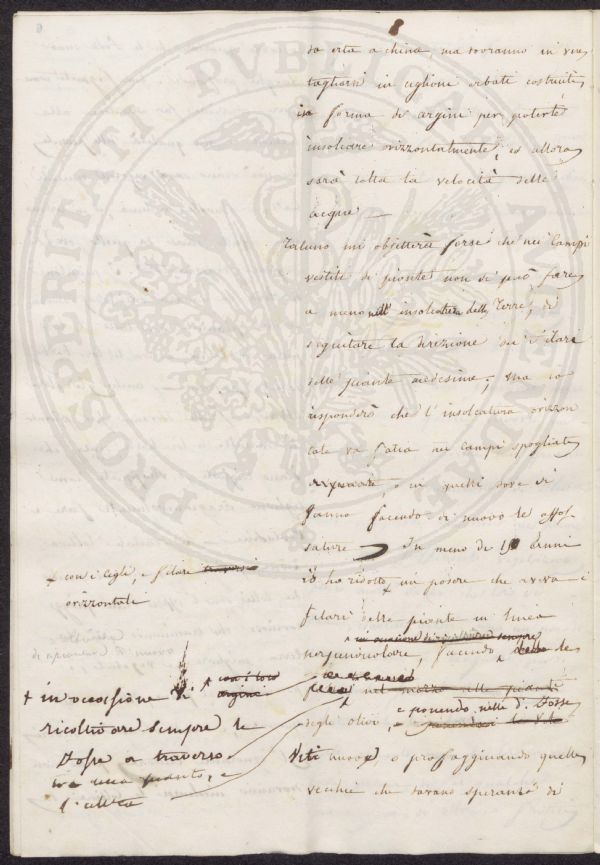 6
so erta a china, ma sovranno in vere
tagliarsi in ciglioni erbati costruiti
in forma di argini per poterle
insolcare orizzontalmente, ed allora
sarà tolta la velocità delle
acque —
Taluno mi obietterà forse che nei Campi
vestiti di piante non si può fare
a meno nell' insolcatura delle Terre, di
seguitare la direzione dei Filari
delle piante medesime; ma io
risponderò che l' insolcatura orizzon
tale va fatta nei campi spogliati
di piante, o in quelli dove si
fanno facendo di nuovo le affos-
sature — In meno di 1 Anni
io ho risolto un podere che aveva i
filari delle piante in linea
perpendicolare, facendo de
nel mezzo alle piante
degli olivi, e ponendo nelle d. Fosse
Viti nuove o propagginando quelle
vecchie che davano speranza di
con i Cigli, e filari traversi
orizzontali
+ in occasione di con i loro
argine
ricoltivare sempre le
Fosse a traverso
tra una pianta, e
l' altra
PROSPERITATI PUBLICAE AUGENDAE